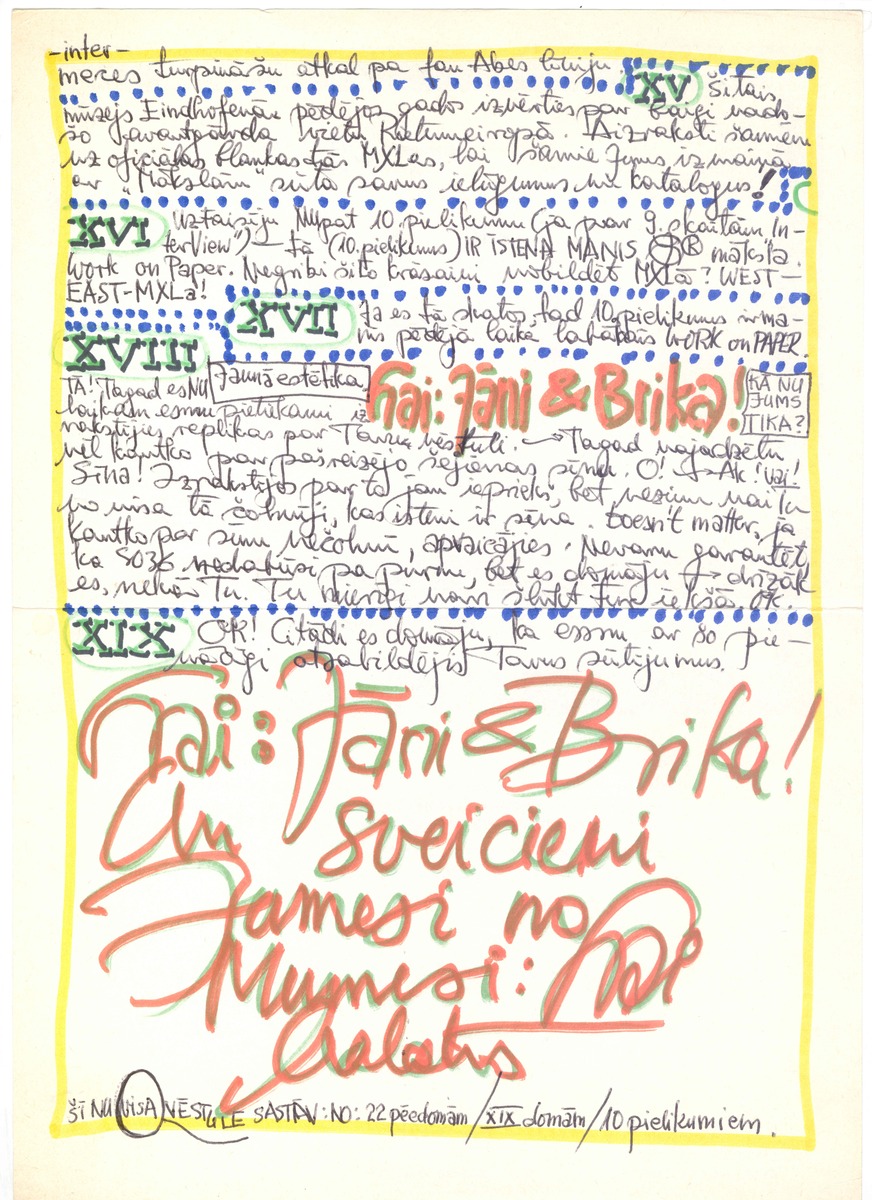 -inter-
meces turpināšu atkal pa fan Abes līniju.
XV Šitais
mūzejs Eindhofenā pēdējos gados izvērties par baigi vads-
šo avantgārda vietu Rietumeiropā. Aizraksti šamiem
uz oficiālas blankas tās MXLas, lai šamie Jums izmaina
ar "Mākslām" sūta savus ielūgumus un katalogus!
XVI Uztaisīju Nupat 10. pielikumu (ja par 9. skaitām In-
terView") — tā (10. pielikums) IR ĪSTENA MANIS ® māksla.
Work on Paper. Negribi šito krāsaini nobildēt MXLā? WEST—
EAST-MXLa!
XVII Ja es tā skatos, tad 10. pielikums ir ma-
nis pēdējā laika labākais WORK on PAPER.
XVIII
Jaunā estētika
hai: Jāni & Brika!
KĀ NU
JUMS
TIKA?
TĀ! Tagad es NU
laikam esmu pietiekami iz-
rakstījies replikas par Tavu vēstuli. → Tagad vajadzētu
vēl kautko par pašreizējo šejienas sīna. O! → Ak! vai!
Sīna! Izrakstījos par to jau iepriekš, bet nezinu vai Tu
no visa tā čohnīji, kas īsteni ir sīna. Doesn't matter, ja
kautko par sīnu nečohnī, apvaicājies. Nevaru garantēt,
ka SO36 nedabūsi pa purnu, bet es domāju → drīzāk
es, nekā Tu. Tu mierīgi vari slikt iekšā. OK.
XIX OK! Citādi es domāju, ka esmu ar šo pie-
nācīgi atzabildējis Tavus sūtījumus.
hai: Jāni & Brika!
Un sveicieni
Jamesi no
Mumesi: hai
ŠĪ NU VISA QVĒSTULE SASTĀV: NO: 22 pēedomām / XIX domām / 10 pielikumiem.